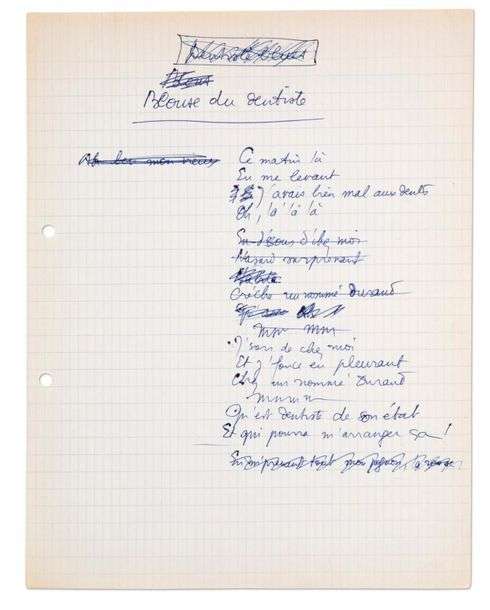 Blouse du dentiste
Ce matin là
En me levant
J'avais bien mal aux dents
Oh, là là là
En d'sous d'chez moi
Hasard surprenant
Crèche un nommé Durand
Mm mm
J'sors de chez moi
Et j'fonce en pleurant
Chez un nommé Durand
Mmmm
Qu'est dentiste de son état
Et qui pourra m'arranger ça!